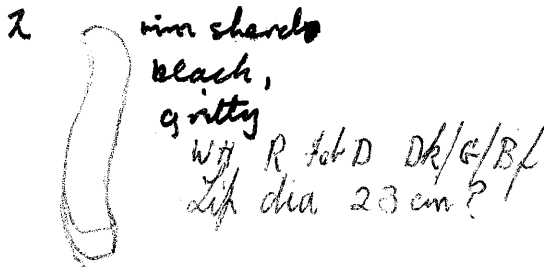 2 rim sherds
black,
gritty
WH R Fab D Dk/G/Bf
Lip dia 23 cm?